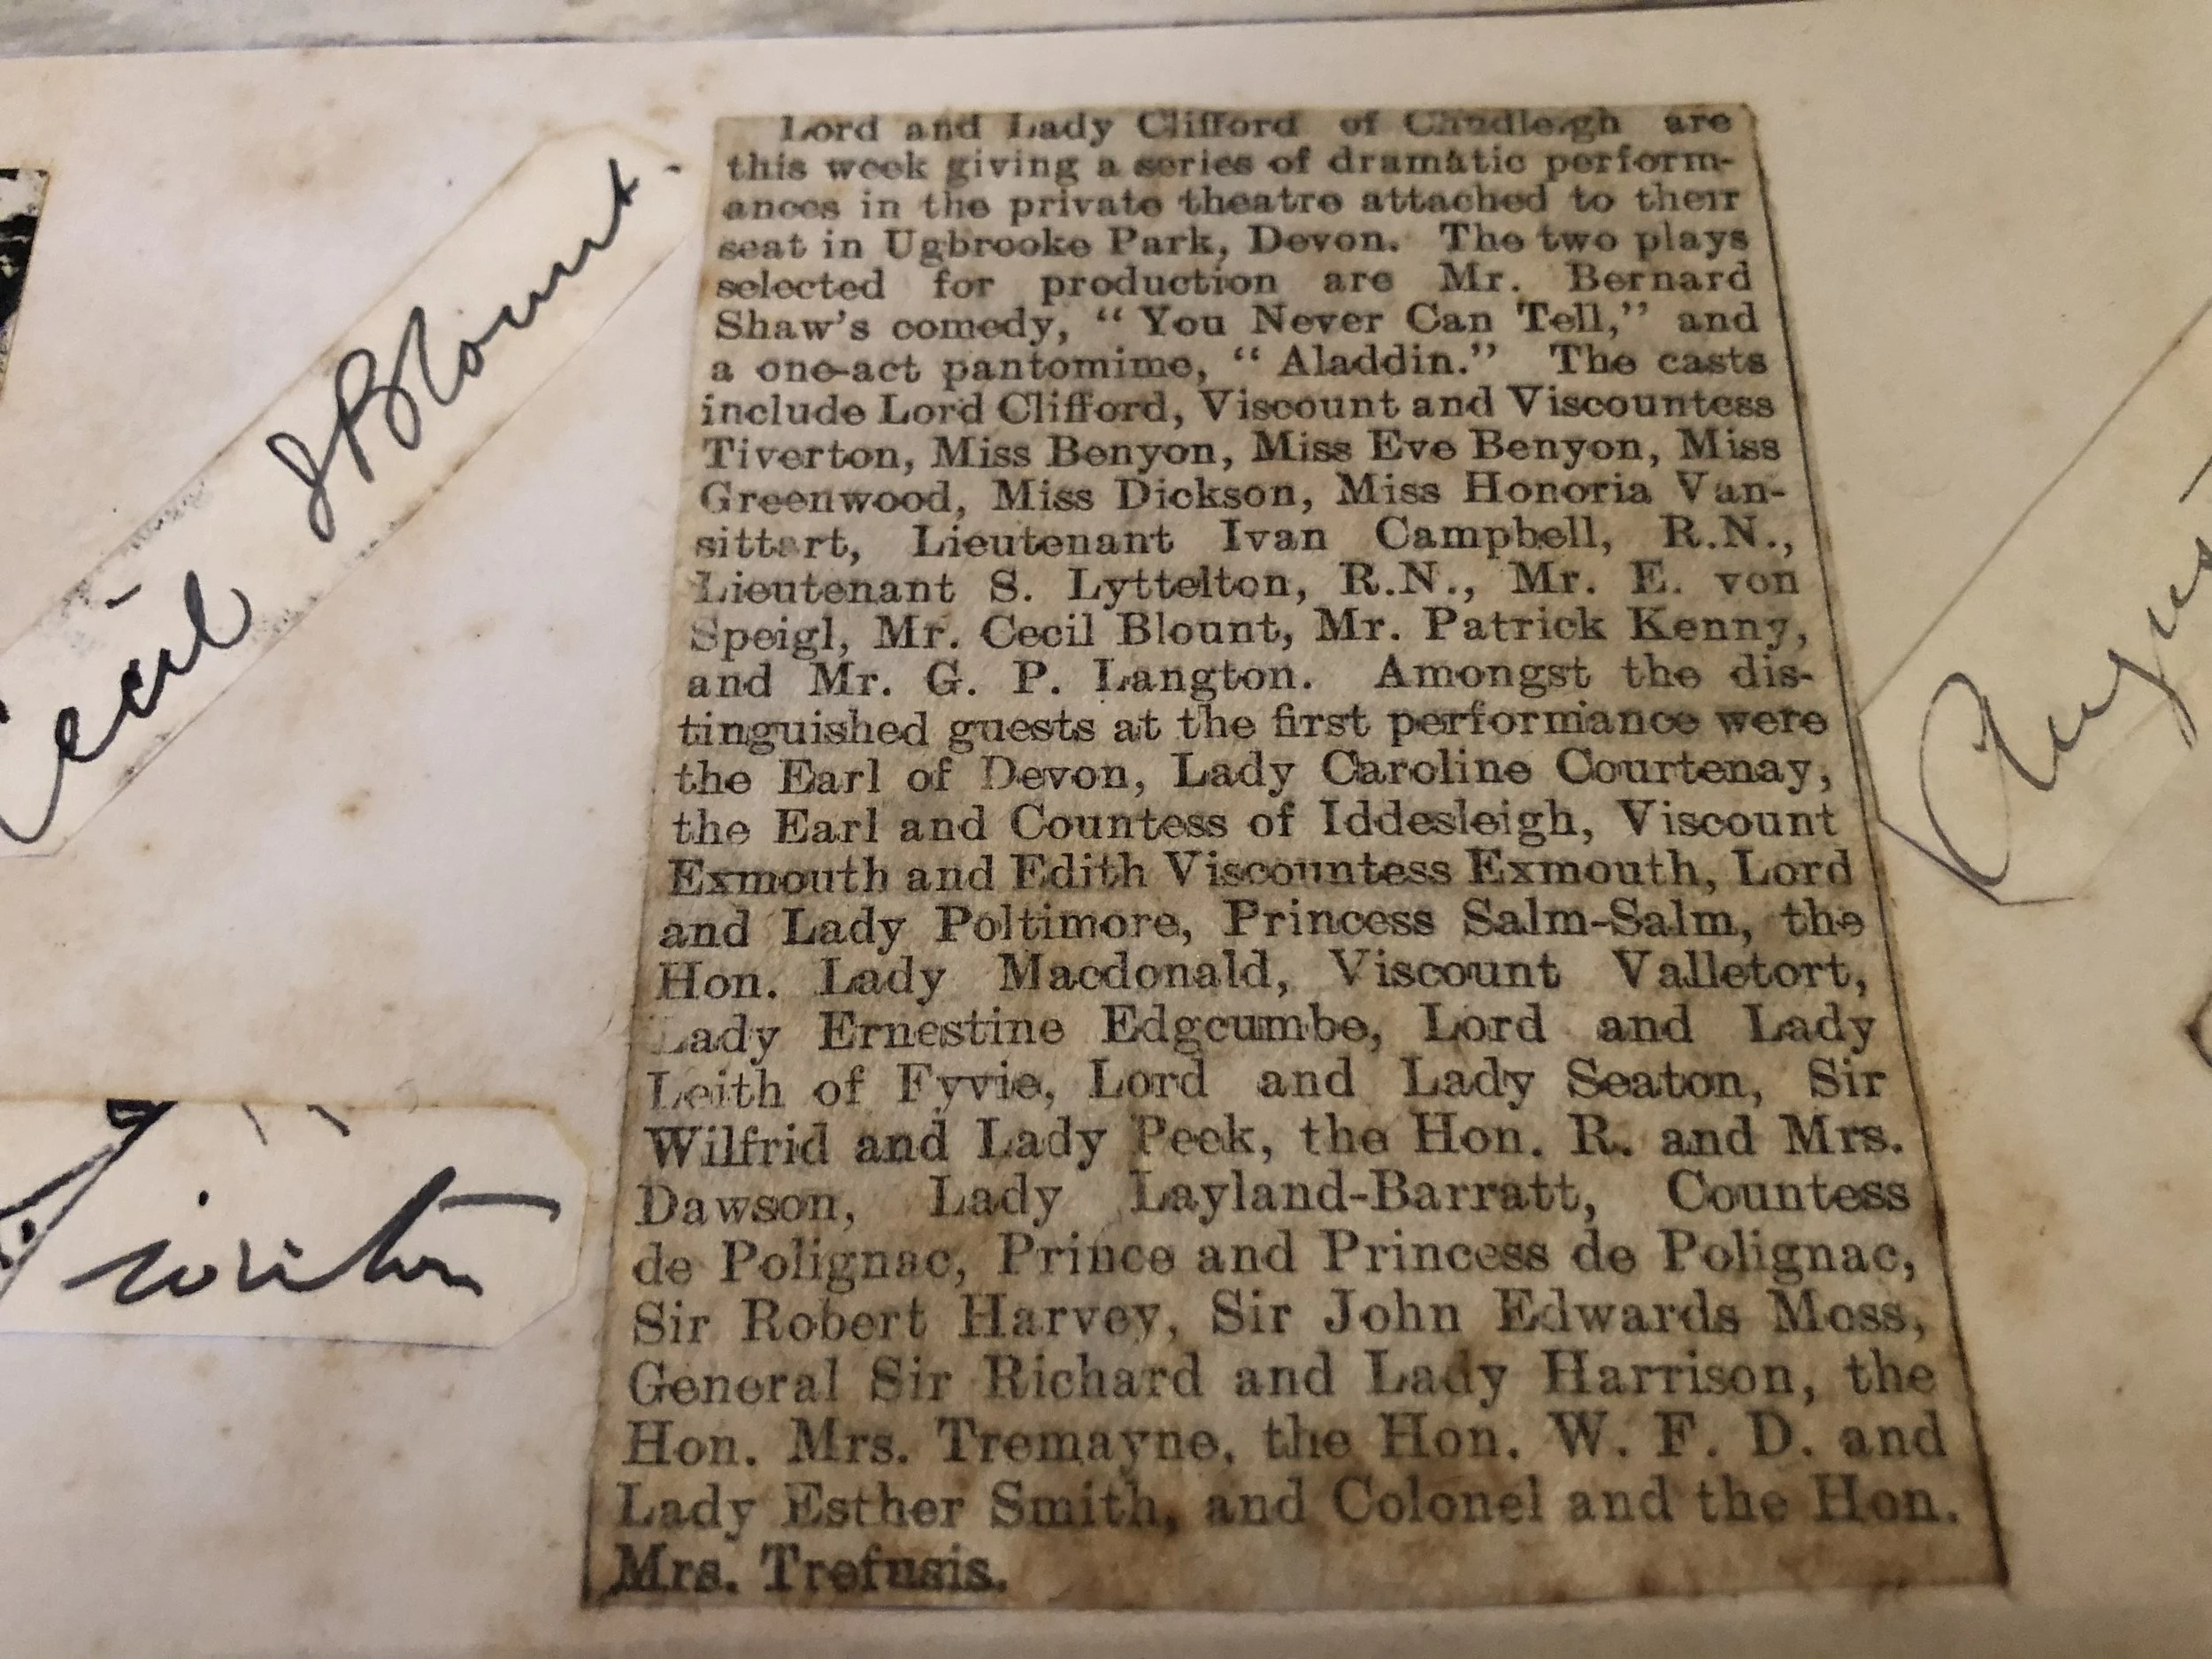 Cecil J Blount.
Lord and Lady Clifford of Chudleigh are
this week giving a series of dramatic perform-
ances in the private theatre attached to their
seat in Ugbrooke Park, Devon. The two plays
selected for production are Mr. Bernard
Shaw's comedy, "You Never Can Tell," and
a one-act pantomime, "Aladdin." The casts
include Lord Clifford, Viscount and Viscountess
Tiverton, Miss Benyon, Miss Eve Benyon, Miss
Greenwood, Miss Dickson, Miss Honoria Van-
sittart, Lieutenant Ivan Campbell, R.N.,
Lieutenant S. Lyttelton, R.N., Mr. E. von
Speigl, Mr. Cecil Blount, Mr. Patrick Kenny,
and Mr. G. P. Langton. Amongst the dis-
tinguished guests at the first performance were
the Earl of Devon, Lady Caroline Courtenay,
the Earl and Countess of Iddesleigh, Viscount
Exmouth and Edith Viscountess Exmouth, Lord
and Lady Poltimore, Princess Salm-Salm, the
Hon. Lady Macdonald, Viscount Valletort,
Lady Ernestine Edgcumbe, Lord and Lady
Leith of Fyvie, Lord and Lady Seaton, Sir
Wilfrid and Lady Peek, the Hon. R. and Mrs.
Dawson, Lady Layland-Barratt, Countess
de Polignac, Prince and Princess de Polignac,
Sir Robert Harvey, Sir John Edwards Moss,
General Sir Richard and Lady Harrison, the
Hon. Mrs. Tremayne, the Hon. W. F. D. and
Lady Esther Smith, and Colonel and the Hon.
Mrs. Trefusis.